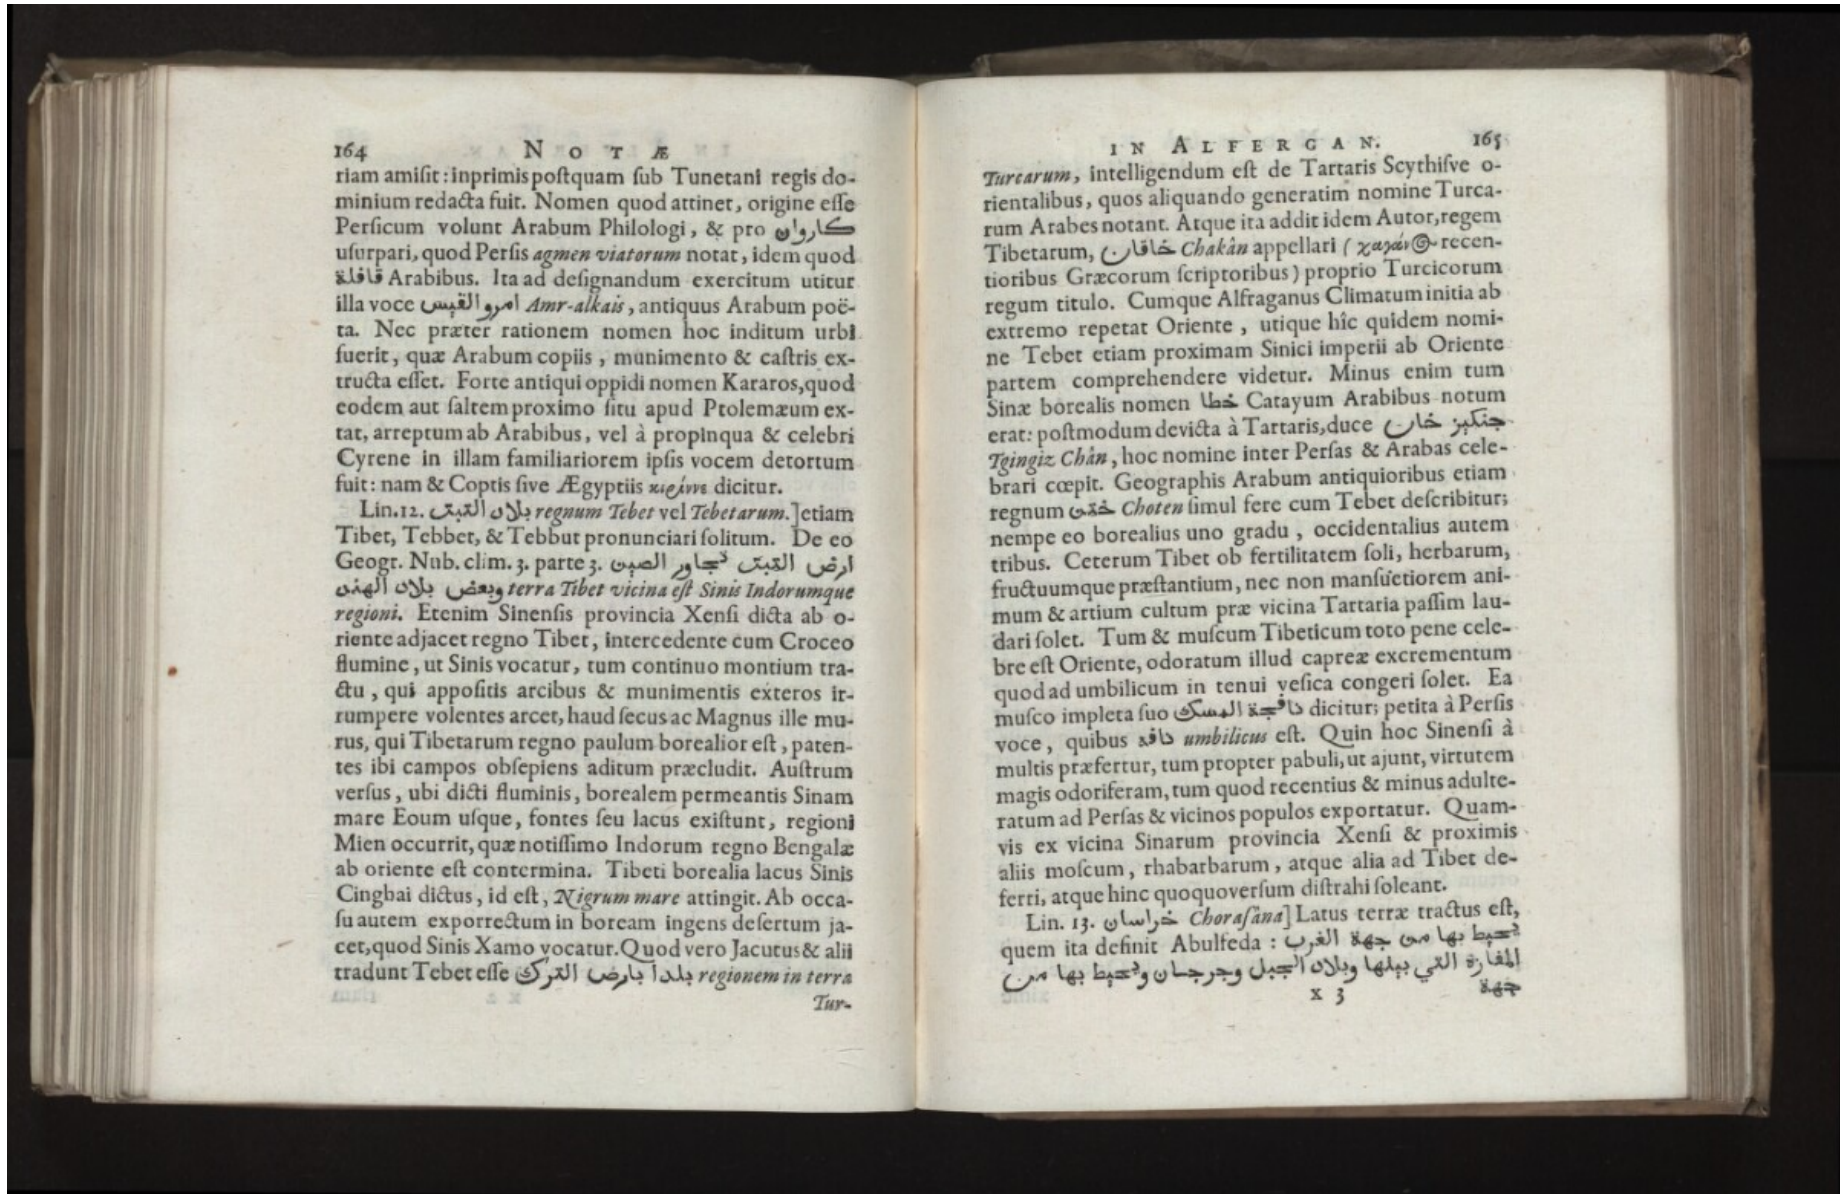 164 NOTÆ
riam amiſit: inprimis poſtquam ſub Tunetani regis do-
minium redacta fuit. Nomen quod attinet, origine eſſe
Perſicum volunt Arabum Philologi, & pro كاروان
uſurpari, quod Perſis agmen viatorum notat, idem quod
قافلة Arabibus. Ita ad deſignandum exercitum utitur
illa voce امرو القيس Amr-alkais, antiquus Arabum poë-
ta. Nec præter rationem nomen hoc inditum urbi
fuerit, quæ Arabum copiis, munimento & caſtris ex-
tructa eſſet. Forte antiqui oppidi nomen Kararos, quod
eodem aut ſaltem proximo ſitu apud Ptolemæum ex-
tat, arreptum ab Arabibus, vel à propinqua & celebri
Cyrene in illam familiariorem ipſis vocem detortum
fuit: nam & Coptis ſive Ægyptiis dicitur.
Lin. 12. بلاد التبت regnum Tebet vel Tebetarum.] etiam
Tibet, Tebbet, & Tebbut pronunciari ſolitum. De eo
Geogr. Nub. clim. 3. parte 3. ارض التبت تجاور الصين
وبعض بلاد الهند terra Tibet vicina eſt Sinis Indorumque
regioni. Etenim Sinenſis provincia Xenſi dicta ab o-
riente adjacet regno Tibet, intercedente cum Croceo
flumine, ut Sinis vocatur, tum continuo montium tra-
ctu, qui appoſitis arcibus & munimentis exteros ir-
rumpere volentes arcet, haud ſecus ac Magnus ille mu-
rus, qui Tibetarum regno paulum borealior eſt, paten-
tes ibi campos obſepiens aditum præcludit. Auſtrum
verſus, ubi dicti fluminis, borealem permeantis Sinam
mare Eoum uſque, fontes ſeu lacus exiſtunt, regioni
Mien occurrit, quæ notiſſimo Indorum regno Bengalæ
ab oriente eſt contermina. Tibeti borealia lacus Sinis
Cinghai dictus, id eſt, Nigrum mare attingit. Ab occa-
ſu autem exporrectum in boream ingens deſertum ja-
cet, quod Sinis Xamo vocatur. Quod vero Jacutus & alii
tradunt Tebet eſſe بلدا بارض الترك regionem in terra
Tur-
IN ALFERGAN. 165
Turcarum, intelligendum eſt de Tartaris Scythiſve o-
rientalibus, quos aliquando generatim nomine Turca-
rum Arabes notant. Atque ita addit idem Autor, regem
Tibetarum, خاقان Chakân appellari (χαγάν recen-
tioribus Græcorum ſcriptoribus) proprio Turcicorum
regum titulo. Cumque Alfraganus Climatum initia ab
extremo repetat Oriente, utique hîc quidem nomi-
ne Tebet etiam proximam Sinici imperii ab Oriente
partem comprehendere videtur. Minus enim tum
Sinæ borealis nomen خطا Catayum Arabibus notum
erat: poſtmodum devicta à Tartaris, duce جنكيز خان
Tgingiz Chân, hoc nomine inter Perſas & Arabas cele-
brari cœpit. Geographis Arabum antiquioribus etiam
regnum ختن Choten ſimul fere cum Tebet deſcribitur;
nempe eo borealius uno gradu, occidentalius autem
tribus. Ceterum Tibet ob fertilitatem ſoli, herbarum,
fructuumque præſtantium, nec non manſuetiorem ani-
mum & artium cultum præ vicina Tartaria paſſim lau-
dari ſolet. Tum & muſcum Tibeticum toto pene cele-
bre eſt Oriente, odoratum illud capreæ excrementum
quod ad umbilicum in tenui veſica congeri ſolet. Ea
muſco impleta ſuo نافجة المسك dicitur; petita à Perſis
voce, quibus نافه umbilicus eſt. Quin hoc Sinenſi à
multis præfertur, tum propter pabuli, ut ajunt, virtutem
magis odoriferam, tum quod recentius & minus adulte-
ratum ad Perſas & vicinos populos exportatur. Quam-
vis ex vicina Sinarum provincia Xenſi & proximis
aliis moſcum, rhabarbarum, atque alia ad Tibet de-
ferri, atque hinc quoquoverſum diſtrahi ſoleant.
Lin. 13. خراسان Choraſâna] Latus terræ tractus eſt,
quem ita definit Abulfeda: يحيط بها من جهة الغرب
المفازة التي بيلها وبلاد الجبل وجرجان ويحيط بها من
X 3 جهة